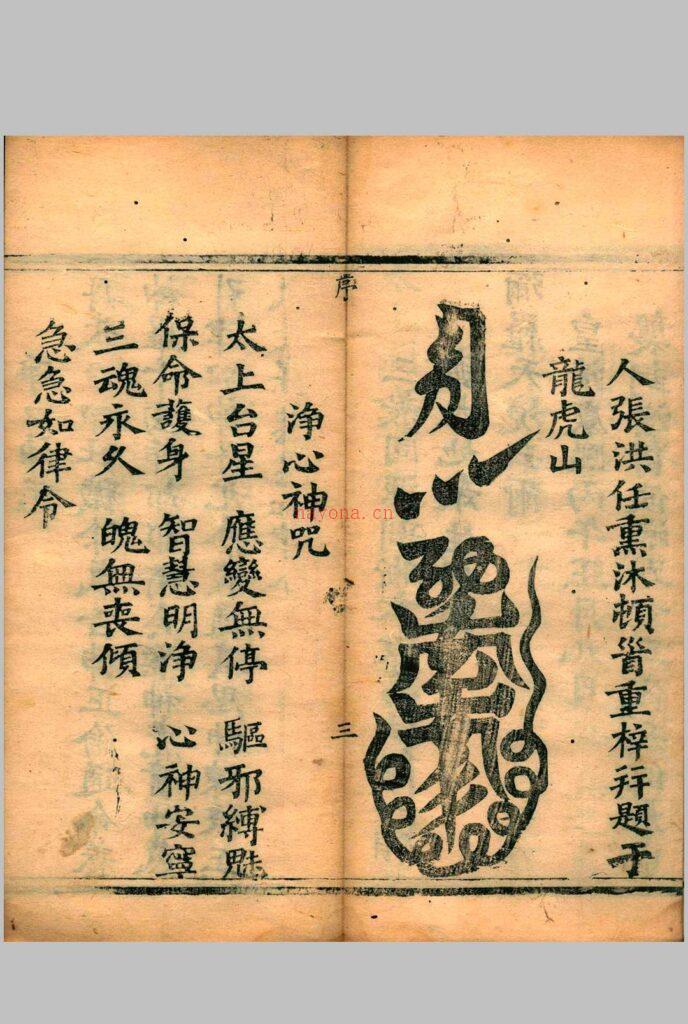 人張洪任熏沐頓首重梓并題于
龍虎山
序
三
淨心神咒
太上台星 應變無停 驅邪縛魅
保命護身 智慧明淨 心神安寧
三魂永久 魄無喪傾
急急如律令
nayona.cn